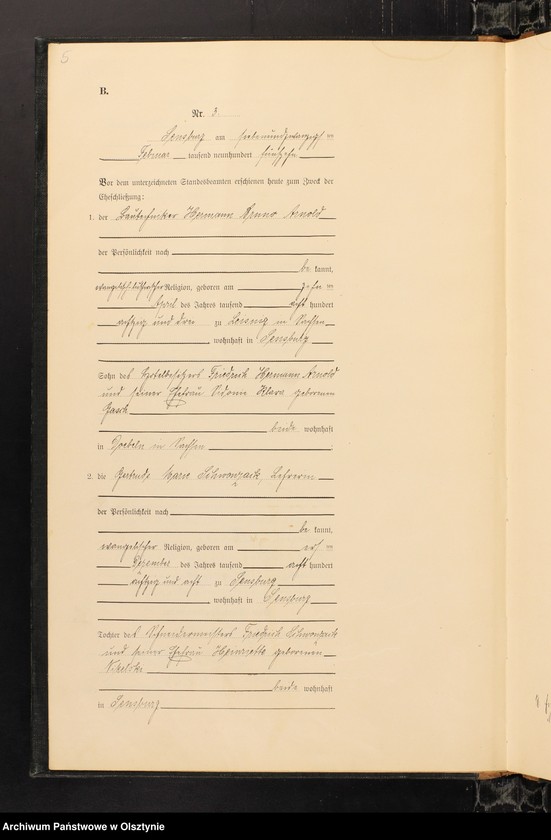 5
B.
Nr. 3.
Sensburg am siebenundzwanzigsten
Februar tausend neunhundert fünfzehn
Vor dem unterzeichneten Standesbeamten erschienen heute zum Zweck der
Eheschließung:
1. der Bautechniker Hermann Bruno Arnold
der Persönlichkeit nach
be kannt,
evangelisch-lutherischer Religion, geboren am zehn ten
April des Jahres tausend acht hundert
achtzig und drei zu Leisnig in Sachsen
, wohnhaft in Sensburg
Sohn des Hotelbesitzers Friedrich Hermann Arnold
und seiner Ehefrau Sidonie Klara geborenen
beide wohnhaft
in Doebeln in Sachsen
2. die Gertrude Marie, Lehrerin
der Persönlichkeit nach
be kannt,
evangelischer Religion, geboren am
Dezember des Jahres tausend acht hundert
achtzig und acht zu Sensburg
, wohnhaft in Sensburg
Tochter des Schneidermeisters Friedrich
und seiner Ehefrau Henriette geborenen
beide wohnhaft
in Sensburg
Archiwum Państwowe w Olsztynie